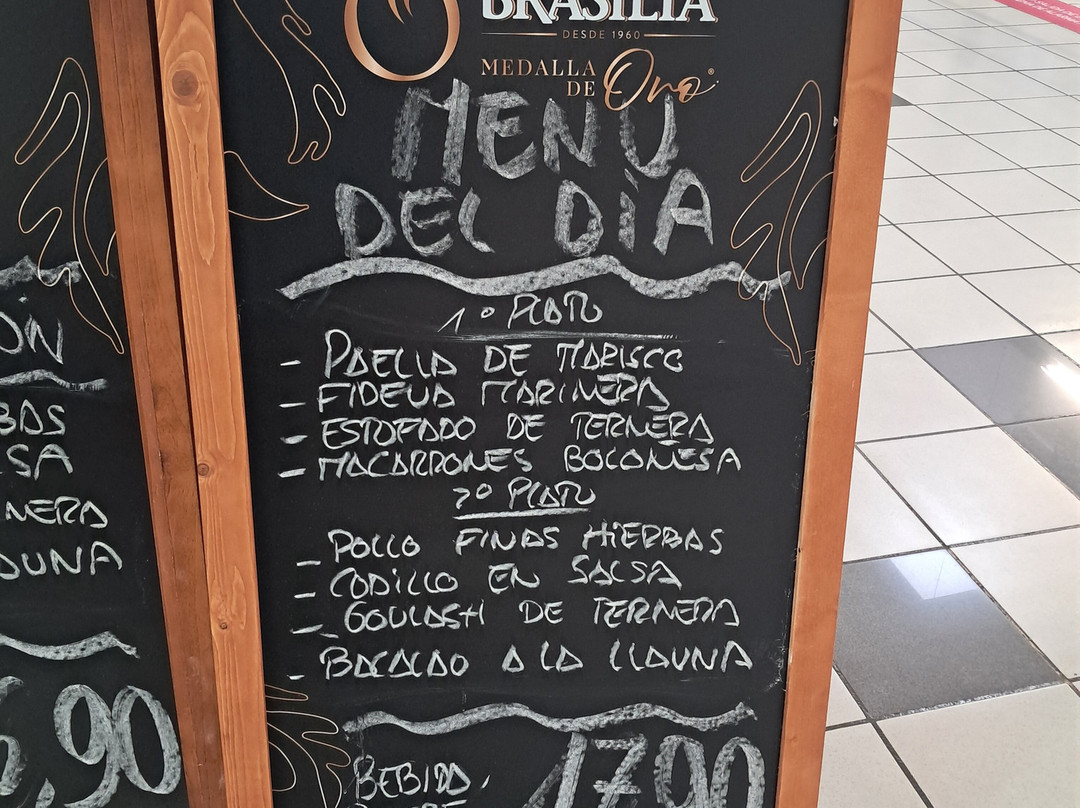 BRASILIA
DESDE 1960
MEDALLA
DE Oro
MENU
DEL DÍA
1º PLATO
- PAELLA DE MARISCO
- FIDEUA MARINERA
- ESTOFADO DE TERNERA
- MACARRONES BOLONESA
2º PLATO
- POLLO FINAS HIERBAS
- CODILLO EN SALSA
- GOULASH DE TERNERA
- BACALAO A LA LLAUNA
BEBIDA,
17,90
NERA
AUNA
,90